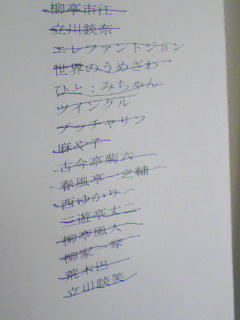 柳亭市江
立川談奈
エレファントジョン
世界のうめざわ
ひと:みちゃん
ツインクル
ブッチャサン
麻や子
古今亭菊六
春風亭一之輔
西ゆかり
三遊亭丈二
柳亭風人
柳家一琴
荒木巴
立川談笑